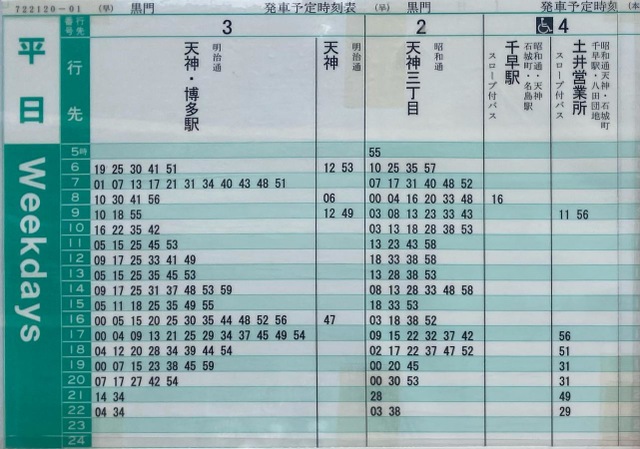 722120-01 (早) 黒門 発車予定時刻表 (早) 黒門 発車予定時刻 (本
行先番号 3 2 4
平日 行先 天神・博多駅 明治通 天神 明治通 天神三丁目 昭和通 千早駅 昭和通・天神 石城町・名島駅 スロープ付バス 土井営業所 昭和通天神・石城町 千早駅・八田団地 スロープ付バス
Weekdays
5時 55
6 19 25 30 41 51 12 53 10 25 35 57
7 01 07 13 17 21 31 34 40 43 48 51 07 17 31 40 48 52
8 10 30 41 56 06 00 04 16 20 33 48 16
9 10 18 55 12 49 03 08 13 23 33 43 11 56
10 16 22 35 42 03 13 18 28 38 53
11 05 15 25 45 53 13 23 43 58
12 09 17 25 33 41 49 18 33 38 58
13 05 15 25 35 45 53 13 28 38 53
14 09 17 25 31 37 48 53 59 08 13 28 33 48 58
15 05 11 18 25 35 49 55 18 33 53
16 00 05 15 20 25 30 35 44 48 52 56 47 03 18 38 52
17 00 04 09 13 21 25 29 34 37 45 49 54 09 15 22 32 37 42 56
18 04 12 20 28 34 39 44 54 02 17 22 37 47 52 51
19 00 07 15 23 38 45 59 00 20 45 31
20 07 17 27 42 54 00 30 53 31
21 14 34 28 49
22 04 34 03 38 29
23
24